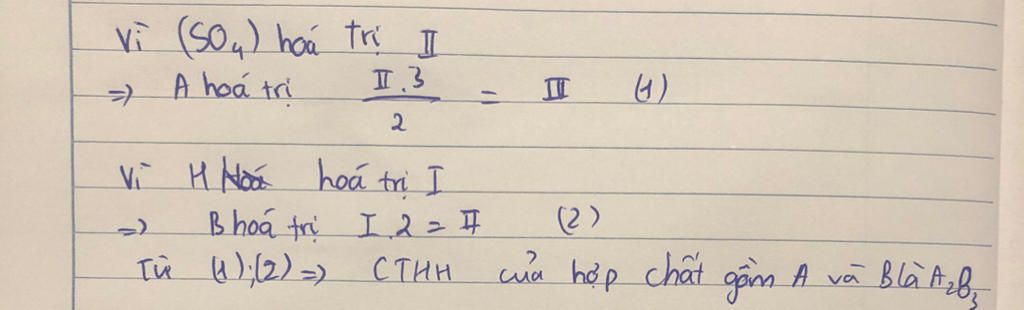 Vì (SO₄) hoá trị II
=> A hoá trị II.3/2 = III (1)
Vì H hoá trị I
=> B hoá trị I.2 = II (2)
Từ (1);(2) => CTHH của hợp chất gồm A và B là A₂B₃